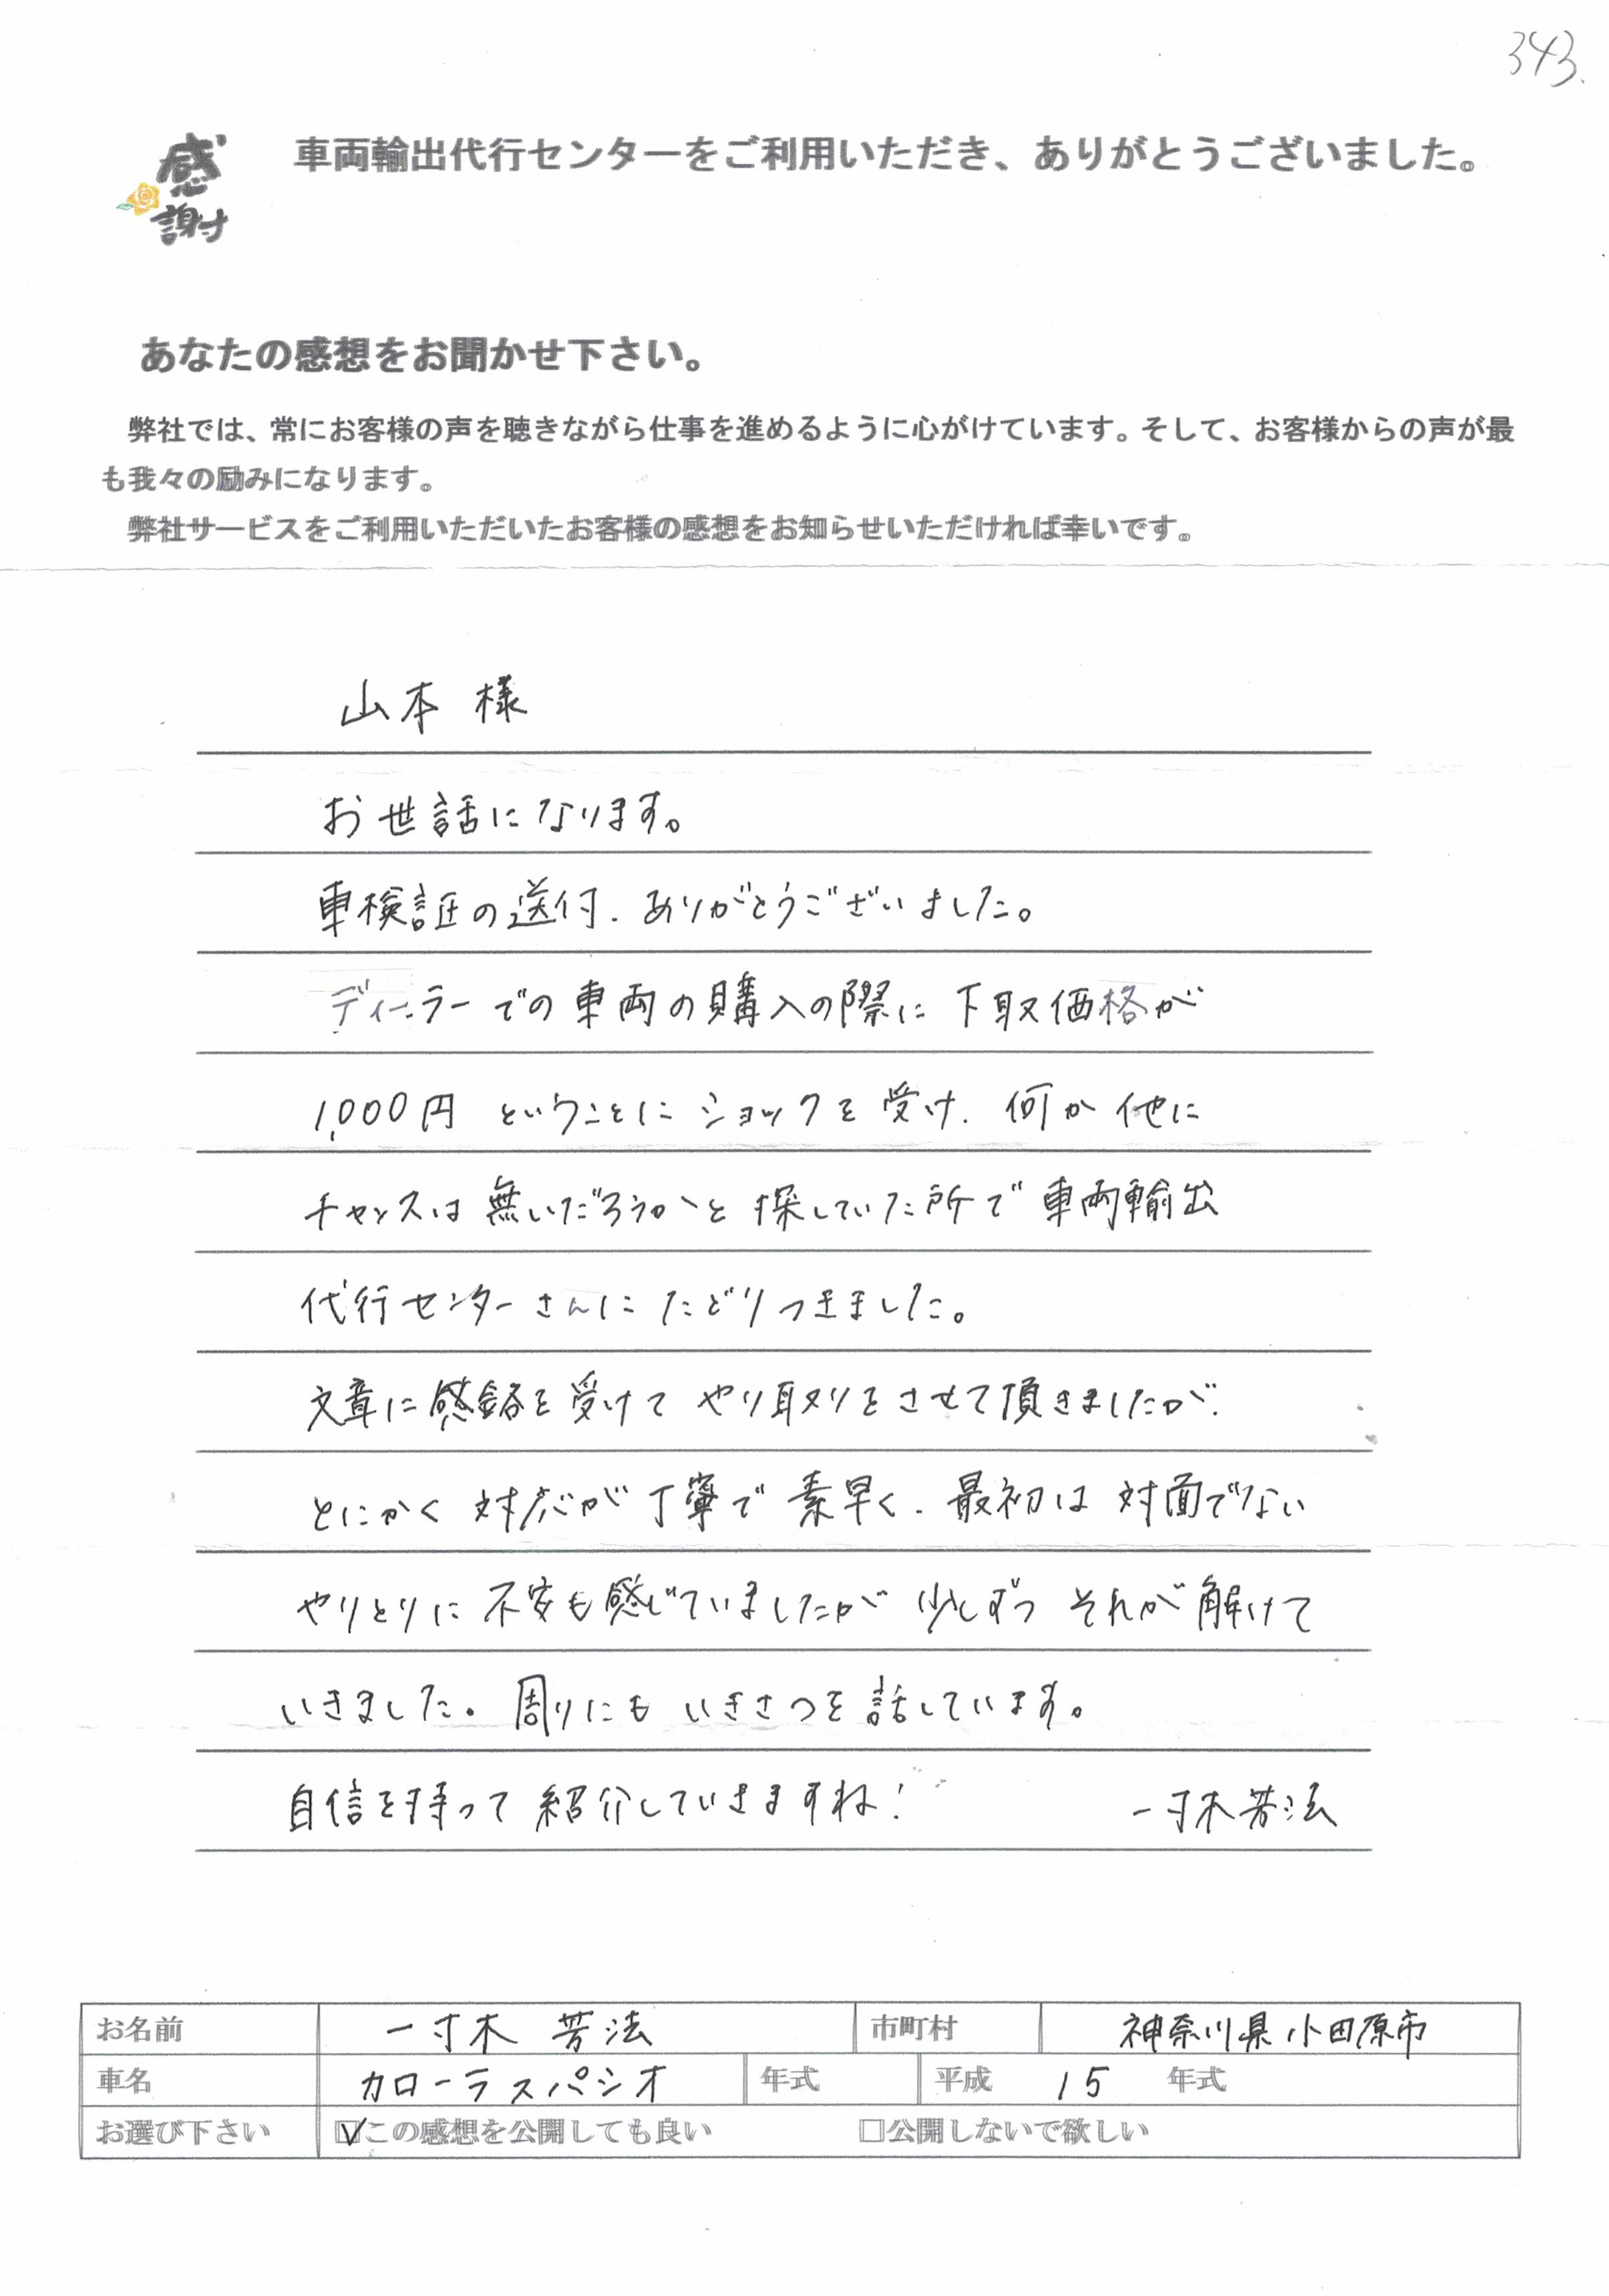 343.
感謝
車両輸出代行センターをご利用いただき、ありがとうございました。
あなたの感想をお聞かせ下さい。
弊社では、常にお客様の声を聴きながら仕事を進めるように心がけています。そして、お客様からの声が最
も我々の励みになります。
弊社サービスをご利用いただいたお客様の感想をお知らせいただければ幸いです。
山本 様
お世話になります。
車検証の送付、ありがとうございました。
ディーラーでの車両の購入の際に下取価格が
1,000円 ということに ショックを受け、何か他に
チャンスは無いだろうかと探していた所で車両輸出
代行センターさんにたどりつきました。
文章に感銘を受けてやり取りをさせて頂きましたが、
とにかく対応が丁寧で素早く、最初は対面でない
やりとりに不安も感じていましたが少しずつそれが解けて
いきました。周りにもいきさつを話しています。
自信を持って紹介していきますね! 一寸木芳法
お名前 一寸木 芳法 市町村 神奈川県小田原市
車名 カローラスパシオ 年式 平成 15 年式
お選び下さい ☑この感想を公開しても良い □公開しないで欲しい